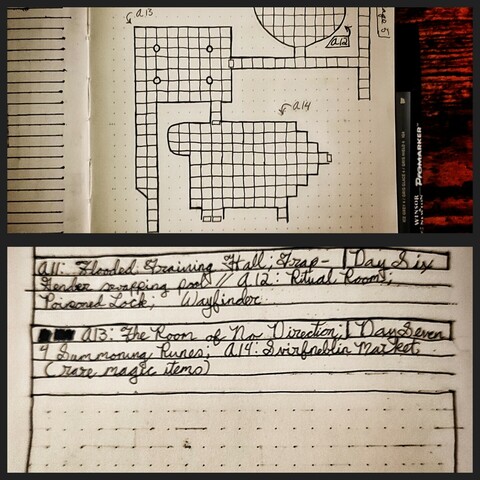 a13
a12
a14
WINSOR PROMARKER
A11: Flooded Training Hall; Trap- Day Six
Gender swapping pool // A12: Ritual Room;
Poisoned Lock; Wayfinder
A13: The Room of No Direction; Day Seven
4 Summoning Runes; A14: Svirfneblin Market
(rare magic items)